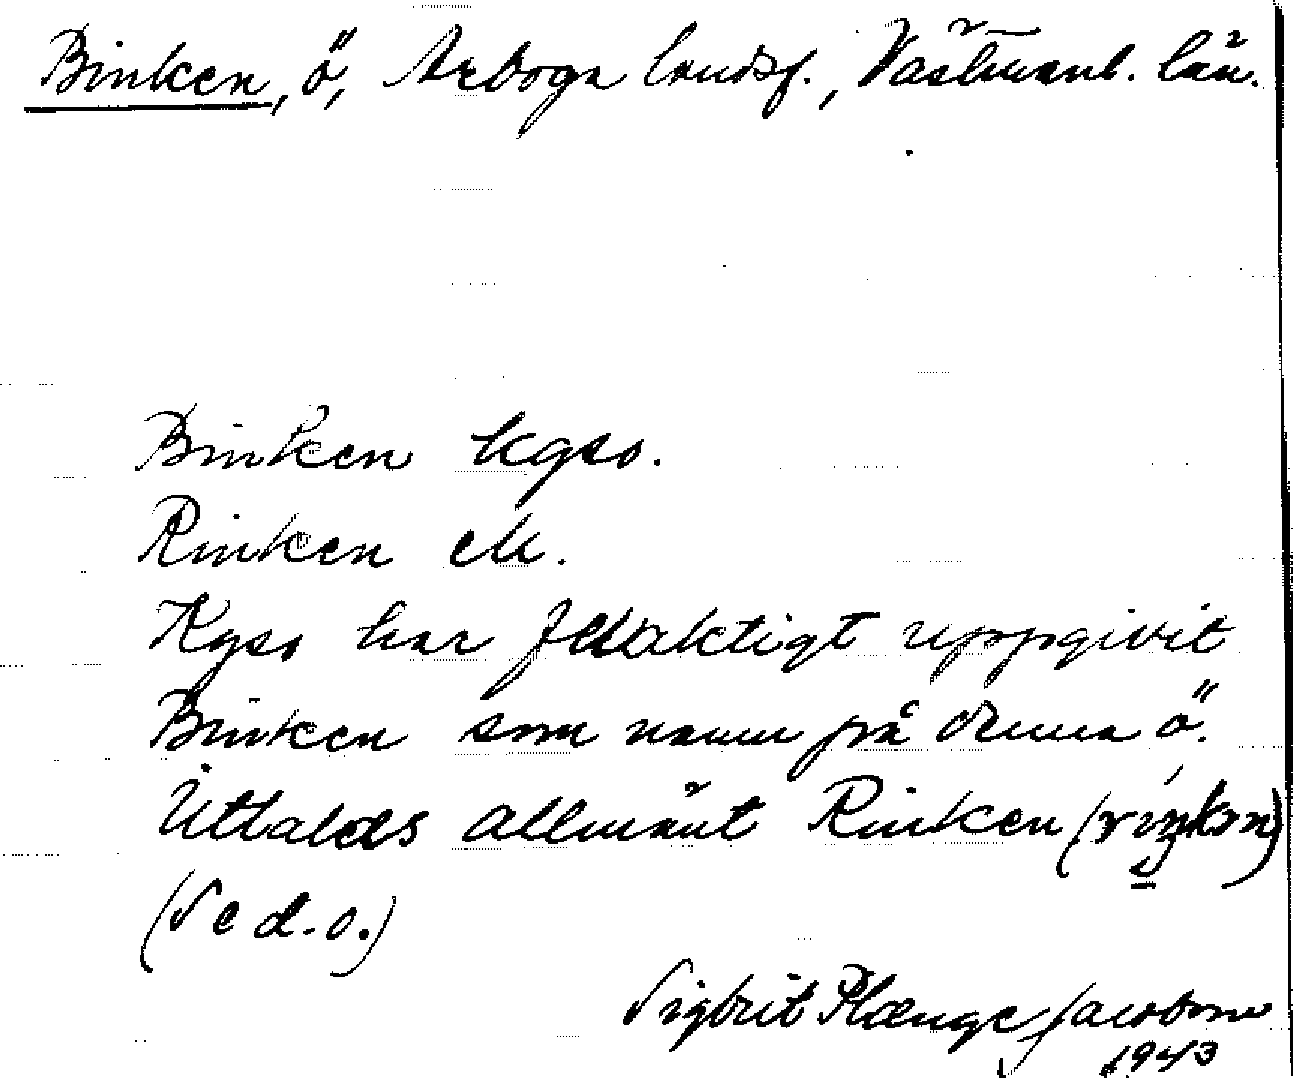 Binken, ö, Arboga landsf., Västmanl. län.
Binken kgso.
Rinken ek.
Kgso har felaktigt uppgivit
Binken som namn på denna ö.
Uttalas allmänt Rinken (rıŋkən)
(Se d.o.)
Sigbrit Plænge Jacobson
1943